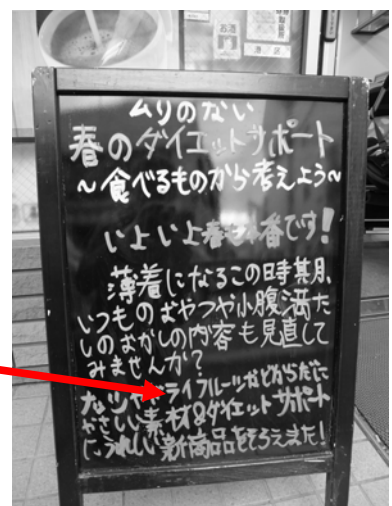 お酒
港区
ムリのない
春のダイエットサポート
～食べるものから考えよう～
いよいよ春も本番です！
薄着になるこの時期、
いつものおやつや小腹満た
しのおかしの内容も見直して
みませんか？
ナッツやドライフルーツなどからだに
やさしい素材&ダイエットサポート
にうれしい新商品をそろえました！